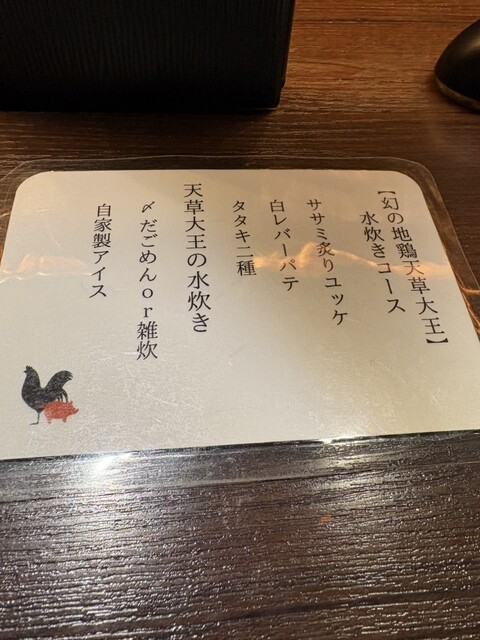 【幻の地鶏天草大王】
水炊きコース
ササミ炙りユッケ
白レバーパテ
タタキ二種
天草大王の水炊き
〆だごめんor雑炊
自家製アイス